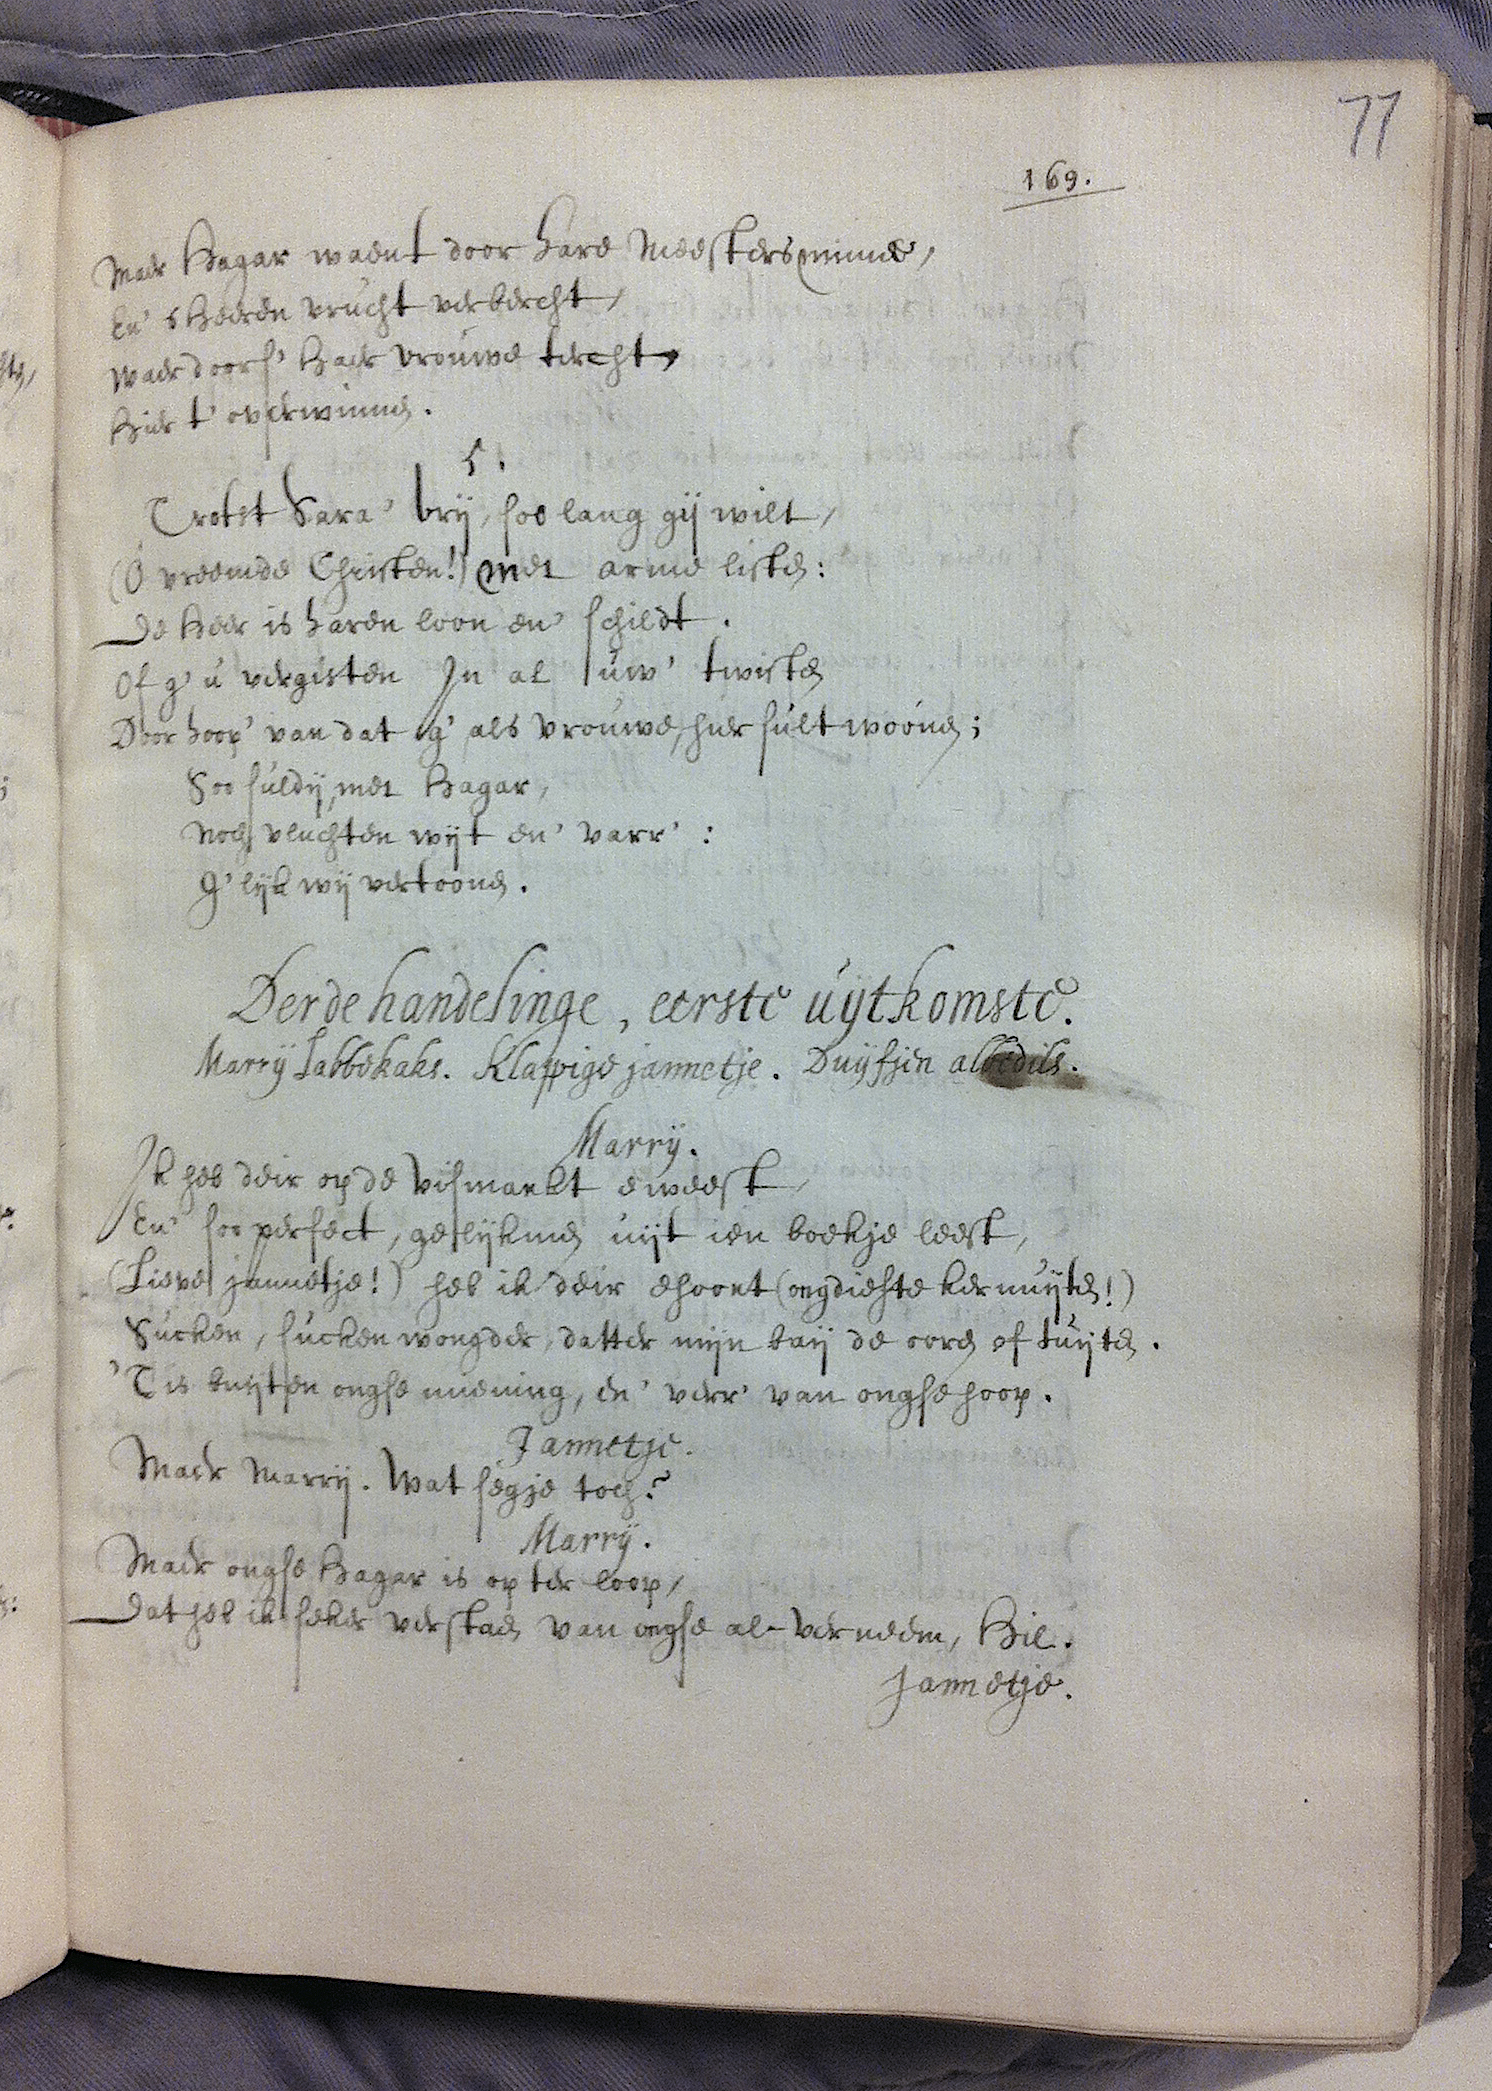 77
169.
Maer Hagar waent door hare Meesters minne,
En' sHeeren vrucht verkercht,
Waer door s' haer vrouwe tercht,
Hier t' overwinnen.
5.
Trotst Sara' vrij, soo lang gij wilt,
(O vreemde Christen!) met arme listen:
De Heer is haren loon en' schildt.
Of g' u vergisten In al uw' twisten
Door hoop' van dat g' als vrouwe, hier sult woonen;
Soo suldij, met Hagar,
Noch vluchten wijt en' varr':
G'lijk wij vertoonen.
Derde handelinge, eerste uytkomste.
Marrij Labbekaks. Klappige jannetje. Duijfjen albedils.
Marrij.
Ik heb deir op de Vismarkt eweest,
En' soo perfect, gelijkmen uijt ien boekje leest,
(Lieve jannetje!) heb ik deir ehoort (ongdiehte kermuijten!)
Sucken, sucken wongder, datter mijn baij de ooren of tuijten.
'Tis buijten onghse miening, en' verr' van onghse hoop.
Jannetje.
Maer Marrij. Wat segje toch?
Marrij.
Maer onghse Hagar is op ter loop,
Dat heb ik seker verstaen van onghse al-verneem, Hil.
Jannetje.